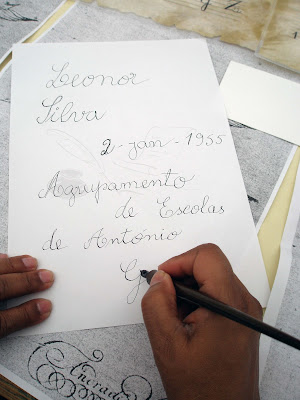 Leonor
Silva
2-jan-1955
Agrupamento
de Escolas
de António
G